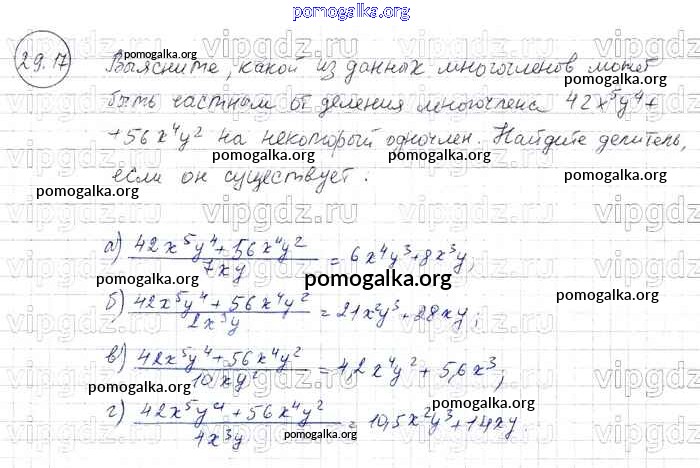 pomogalka.org
29.17
Выясните, какой из данных многочленов может
быть частным от деления многочлена 42x⁵y⁴+
+56x⁴y² на некоторый одночлен. Найдите делитель,
если он существует.
а) (42x⁵y⁴+56x⁴y²)/(7xy) = 6x⁴y³+8x³y,
б) (42x⁵y⁴+56x⁴y²)/(2x³y) = 21x²y³+28xy;
в) (42x⁵y⁴+56x⁴y²)/(10xy²) = 4,2x⁴y²+5,6x³;
г) (42x⁵y⁴+56x⁴y²)/(4x³y) = 10,5x²y³+14xy.